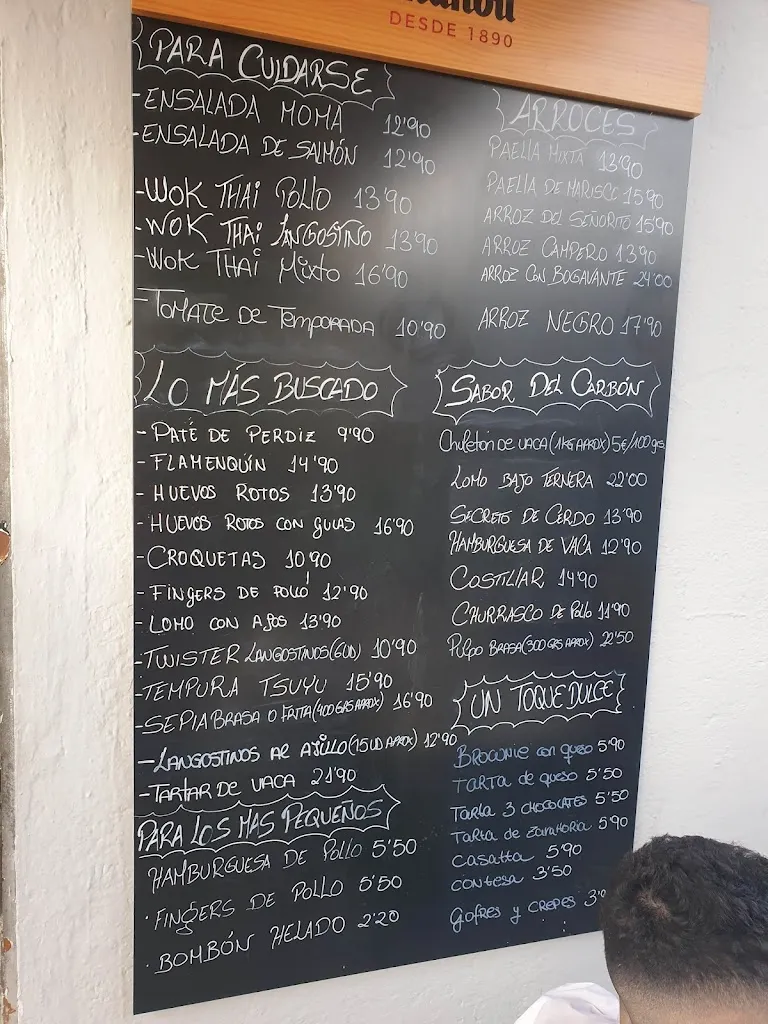 DESDE 1890
PARA CUIDARSE
-ENSALADA MOMA 12'90
-ENSALADA DE SALMÓN 12'90
-WOK THAI POLLO 13'90
-WOK THAI LANGOSTINO 13'90
-WOK THAI MIXTO 16'90
-TOMATE DE TEMPORADA 10'90
LO MÁS BUSCADO
- PATÉ DE PERDIZ 9'90
- FLAMENQUÍN 14'90
- HUEVOS ROTOS 13'90
- HUEVOS ROTOS CON GULAS 16'90
-CROQUETAS 10'90
- FINGERS DE POLLO 12'90
- LOMO CON AJOS 13'90
-TWISTER LANGOSTINOS(6UD) 10'90
-TEMPURA TSUYU 15'90
-SEPIA BRASA O FRITA(400GRS APROX) 16'90
-LANGOSTINOS AL AJILLO(15UD APROX) 12'90
-TARTAR DE VACA 21'90
PARA LOS MAS PEQUEÑOS
HAMBURGUESA DE POLLO 5'50
· FINGERS DE POLLO 5'50
· BOMBÓN HELADO 2'20
ARROCES
PAELLA MIXTA 13'90
PAELLA DE MARISCO 15'90
ARROZ DEL SEÑORITO 15'90
ARROZ CAMPERO 13'90
ARROZ CON BOGAVANTE 24'00
ARROZ NEGRO 17'90
SABOR DEL CARBÓN
CHULETON DE VACA(1KG APROX)5€/100grs
LOMO BAJO TERNERA 22'00
SECRETO DE CERDO 13'90
HAMBURGUESA DE VACA 12'90
COSTILLAR 14'90
CHURRASCO DE POLLO 11'90
PULPO BRASA(300GRS APROX) 22'50
UN TOQUE DULCE
BROWNIE con queso 5'90
TARTA de queso 5'50
TARTA 3 CHOCOLATES 5'50
TARTA de ZANAHORIA 5'90
CASATTA 5'90
CONTESA 3'50
gofres y CREPES